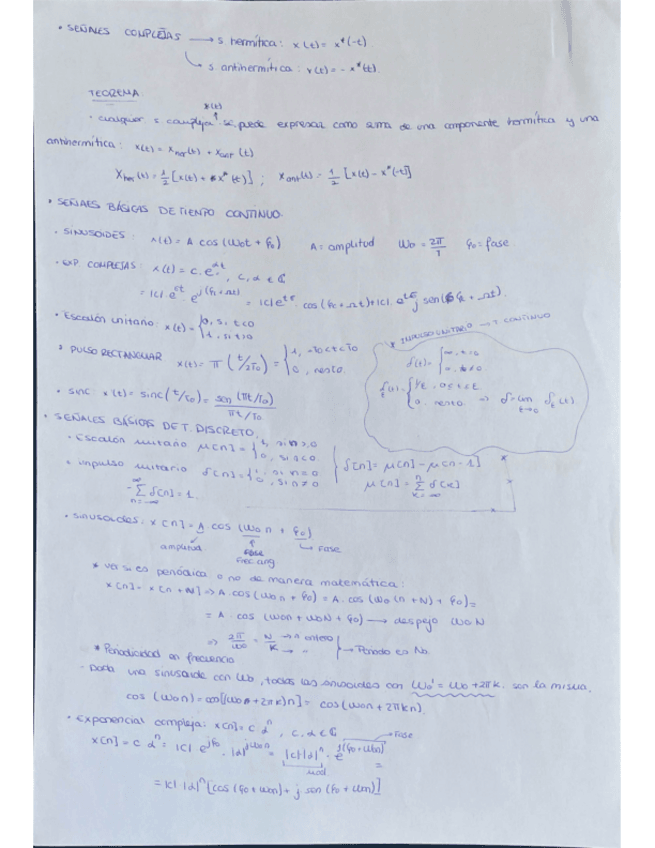 • SEÑALES COMPLEJAS → s. hermítica: x(t) = x*(-t)
↳ s. antihermítica: x(t) = - x*(-t).
TEOREMA:
x(t)
• cualquier s compleja se puede expresar como suma de una componente hermítica y una
antihermítica: x(t) = x her(t) + x ant(t)
x her(t) = 1/2 [x(t) + x*(-t)] ; x ant(t) = 1/2 [x(t) - x*(-t)]
• SEÑALES BÁSICAS DE TIEMPO CONTINUO
• SINUSOIDES: x(t) = A cos(ω0t + φ0) A = amplitud ω0 = 2π/T φ0 = fase
• EXP. COMPLEJAS: x(t) = c · e^αt, c, α ∈ ℂ
• Escalón unitario: x(t) = { 0, si t<0
1, si t>0
* IMPULSO UNITARIO → T CONTINUO
δ(t) = { ∞, t=0
0, t≠0
• PULSO RECTANGULAR x(t) = π (t/2T0) = { 1, -T0<t<T0
0, resto.
• sinc: x(t) = sinc(t/T0) = sen(πt/T0) / πt/T0
• SEÑALES BÁSICAS DE T. DISCRETO.
• Escalón unitario μ[n] = { 1, si n>0
0, si n<0
• impulso unitario δ[n] = { 1, si n=0
0, si n≠0
δ[n] = μ[n] - μ[n-1]
μ[n] = Σ δ[k]
k=-∞
Σ δ[n] = 1.
n=-∞
• sinusoides: x[n] = A cos(ω0n + φ0)
amplitud frec. ang. fase
* ver si es periódica o no de manera matemática:
x[n] = x[n+N] ⇒ A · cos(ω0n + φ0) = A · cos(ω0(n+N) + φ0) =
= A · cos(ω0n + ω0N + φ0) → despejo ω0N
⇒ 2π/ω0 = N/K → entero } → Periodo es N0.
* Periodicidad en frecuencia
- Dada una sinusoide con ω0, todas las sinusoides con ω0' = ω0 + 2πk son la misma.
cos(ω0n) = cos[(ω0 + 2πk)n] = cos(ω0n + 2πkn).
• Exponencial compleja: x[n] = c α^n, c, α ∈ ℂ
fase
x[n] = c α^n = |c| e^jφ0 · |α|^n e^jω0n = |c||α|^n · e^j(φ0+ω0n) =
mod
= |c| |α|^n [cos(φ0 + ω0n) + j sen(φ0 + ω0n)]